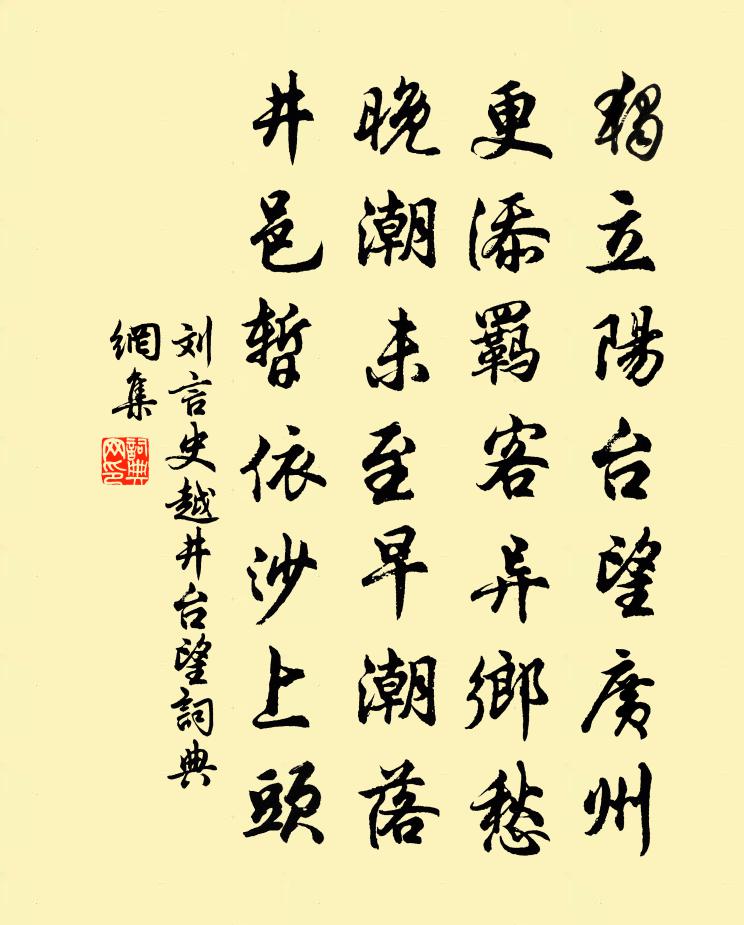 獨立陽台望廣州
更添羈客异鄉愁
晚潮未至早潮落
井邑暫依沙上頭
刘言史越井台望詞典
網集
詞典
网印